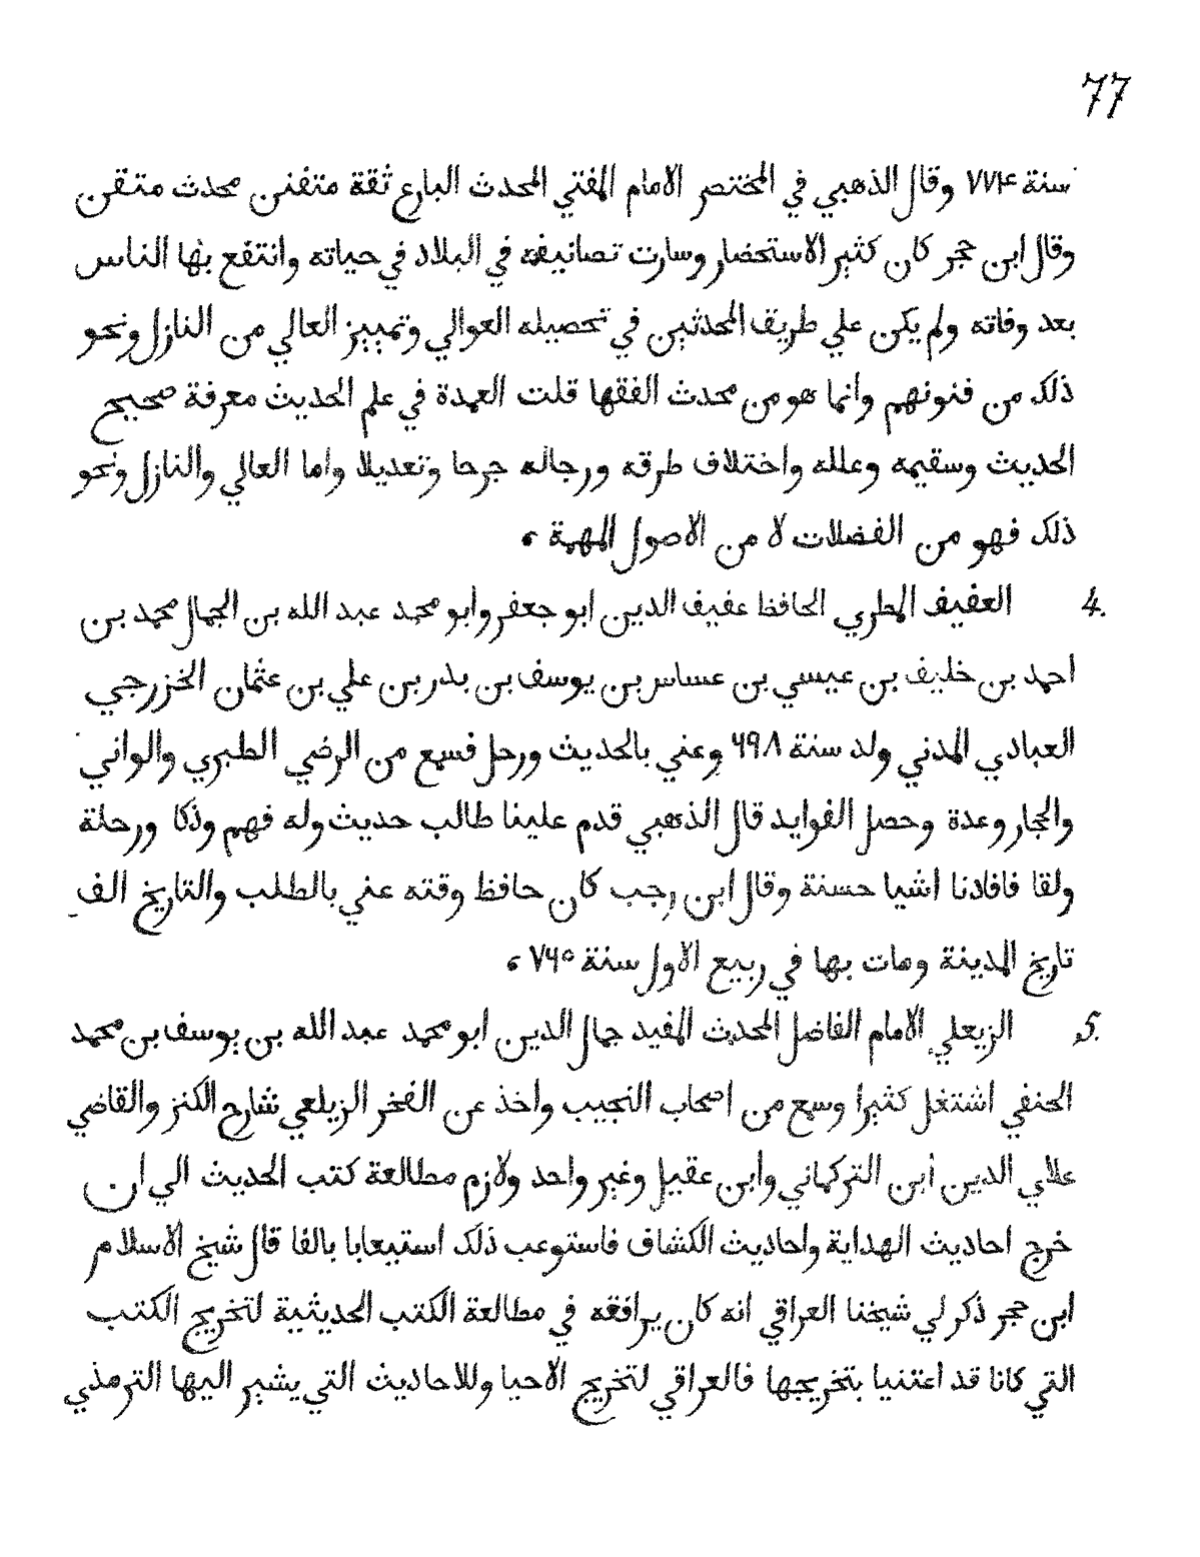 77
سنة ٧٧۴ وقال الذهبي في المختصر الامام المفتي المحدث البارع ثقة متفنن محدث متقن
وقال ابن حجر كان كثير الاستحضار وسارت تصانيفه في البلاد في حياته وانتفع بها الناس
بعد وفاته ولم يكن علي طريف المحدثين في تحصيله العوالي وتمييز العالي من النازل ونحو
ذلك من فنونهم وانما هو من محدث الفقها قلت العمدة في علم الحديث معرفة صحيح
الحديث وسقيمه وعلله واختلاف طرقه ورجاله جرحا وتعديلا واما العالي والنازل ونحو
ذلك فهو من الفضلات لا من الاصول المهمة ،
4. العفيف المطري الحافظ عفيف الدين ابو جعفر وابو محمد عبد الله بن الجمال محمد بن
احمد بن خليف بن عيسي بن عساس بن يوسف بن بدر بن علي بن عثمان الخزرجي
العبادي المدني ولد سنة ۶۹۸ وعني بالحديث ورحل فسمع من الرضي الطبري والواني
والحجار وعدة وحصل الفوايد قال الذهبي قدم علينا طالب حديث وله فهم وذكا ورحلة
ولقا فافادنا اشيا حسنة وقال ابن رجب كان حافظ وقته عني بالطلب والتاريخ الف
تاريخ المدينة ومات بها في ربيع الاول سنة ٧۶٥ ،
5. الزيعلي الامام الفاضل المحدث المفيد جمال الدين ابو محمد عبد الله بن يوسف بن محمد
الحنفي اشتغل كثيرا وسمع من اصحاب النجيب واخذ عن الفخر الزيلعي شارح الكنز والقاضي
علاي الدين ابن التركماني وابن عقيل وغير واحد ولازم مطالعة كتب الحديث الي ان
خرج احاديث الهداية واحاديث الكشاف فاستوعب ذلك استيعابا بالفا قال شيخ الاسلام
ابن حجر ذكر لي شيخنا العراقي انه كان يرافقه في مطالعة الكتب الحديثية لتخريج الكتب
التي كانا قد اعتنيا بتخريجها فالعراقي لتخريج الاحيا وللاحاديث التي يشير اليها الترمذي